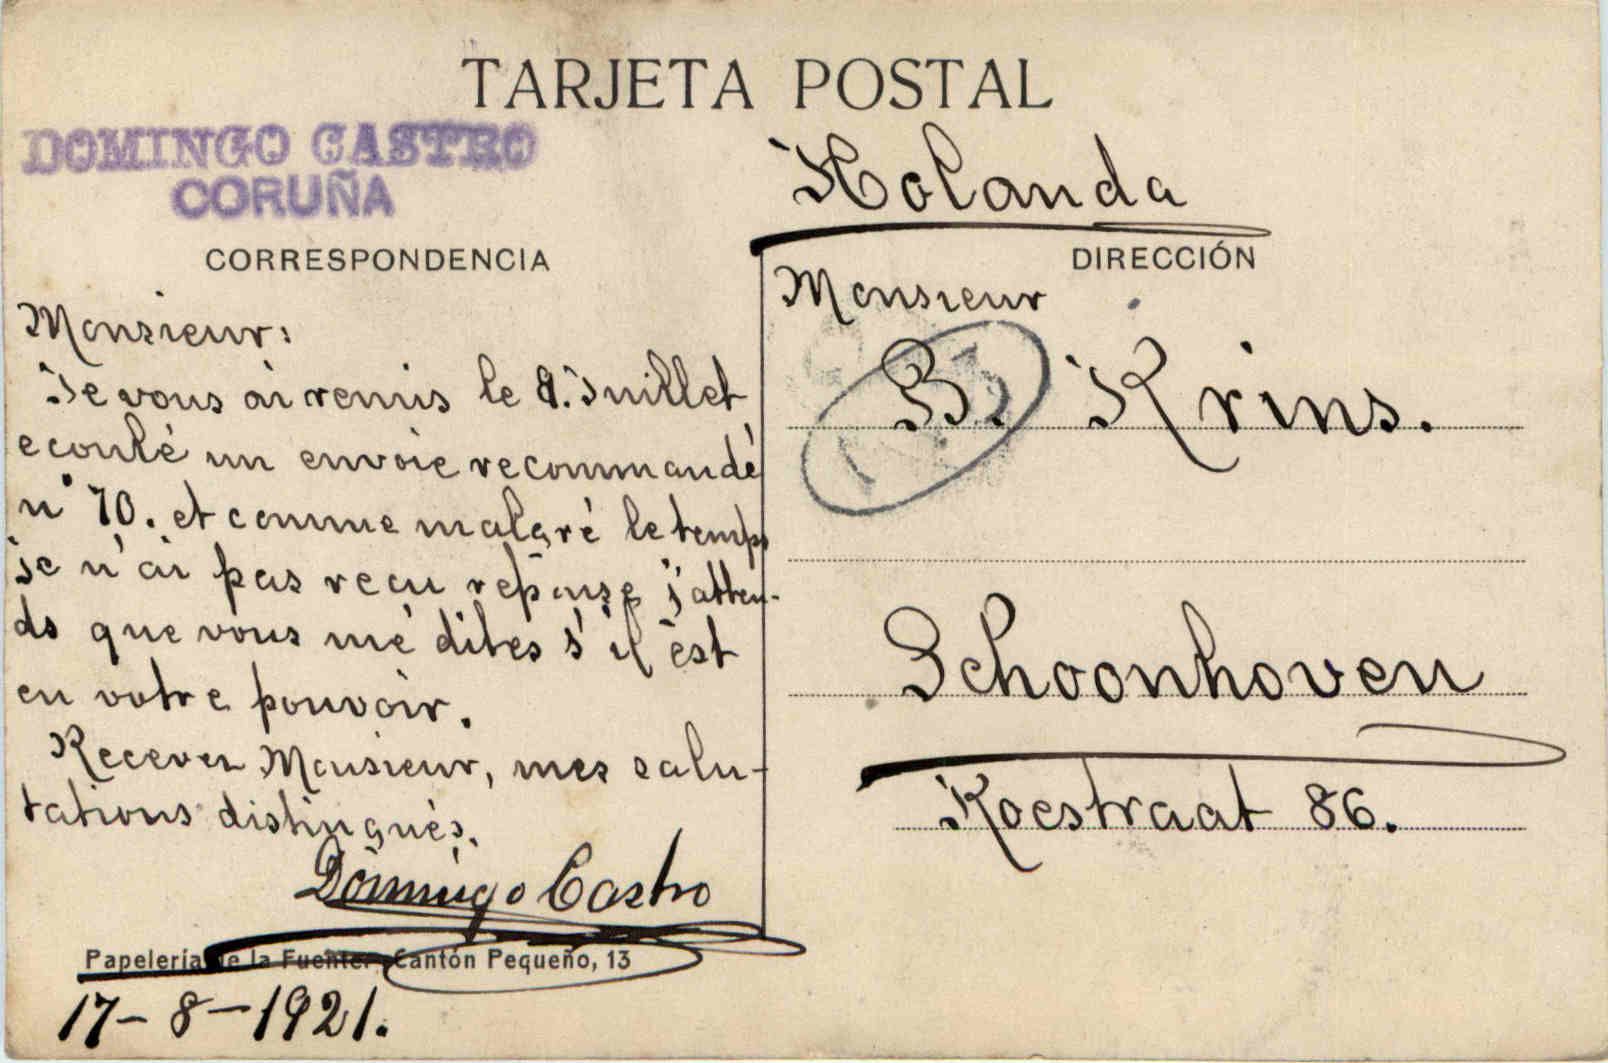 TARJETA POSTAL
DOMINGO CASTRO
CORUÑA
CORRESPONDENCIA
Monsieur:
Je vous ai remis le 8. Juillet
ecoulé un envoie recommandé
n° 70. et comme malgré le temps
je n'ai pas recu reponse j'atten-
ds que vous me dites s'il est
en votre pouvoir.
Recevez Monsieur, mes salu-
tations distingués.
Domingo Castro
Papelería de la Fuente. Cantón Pequeño, 13
17-8-1921.
Holanda
DIRECCIÓN
Monsieur
B. Krins.
Schoonhoven
Koestraat 86.